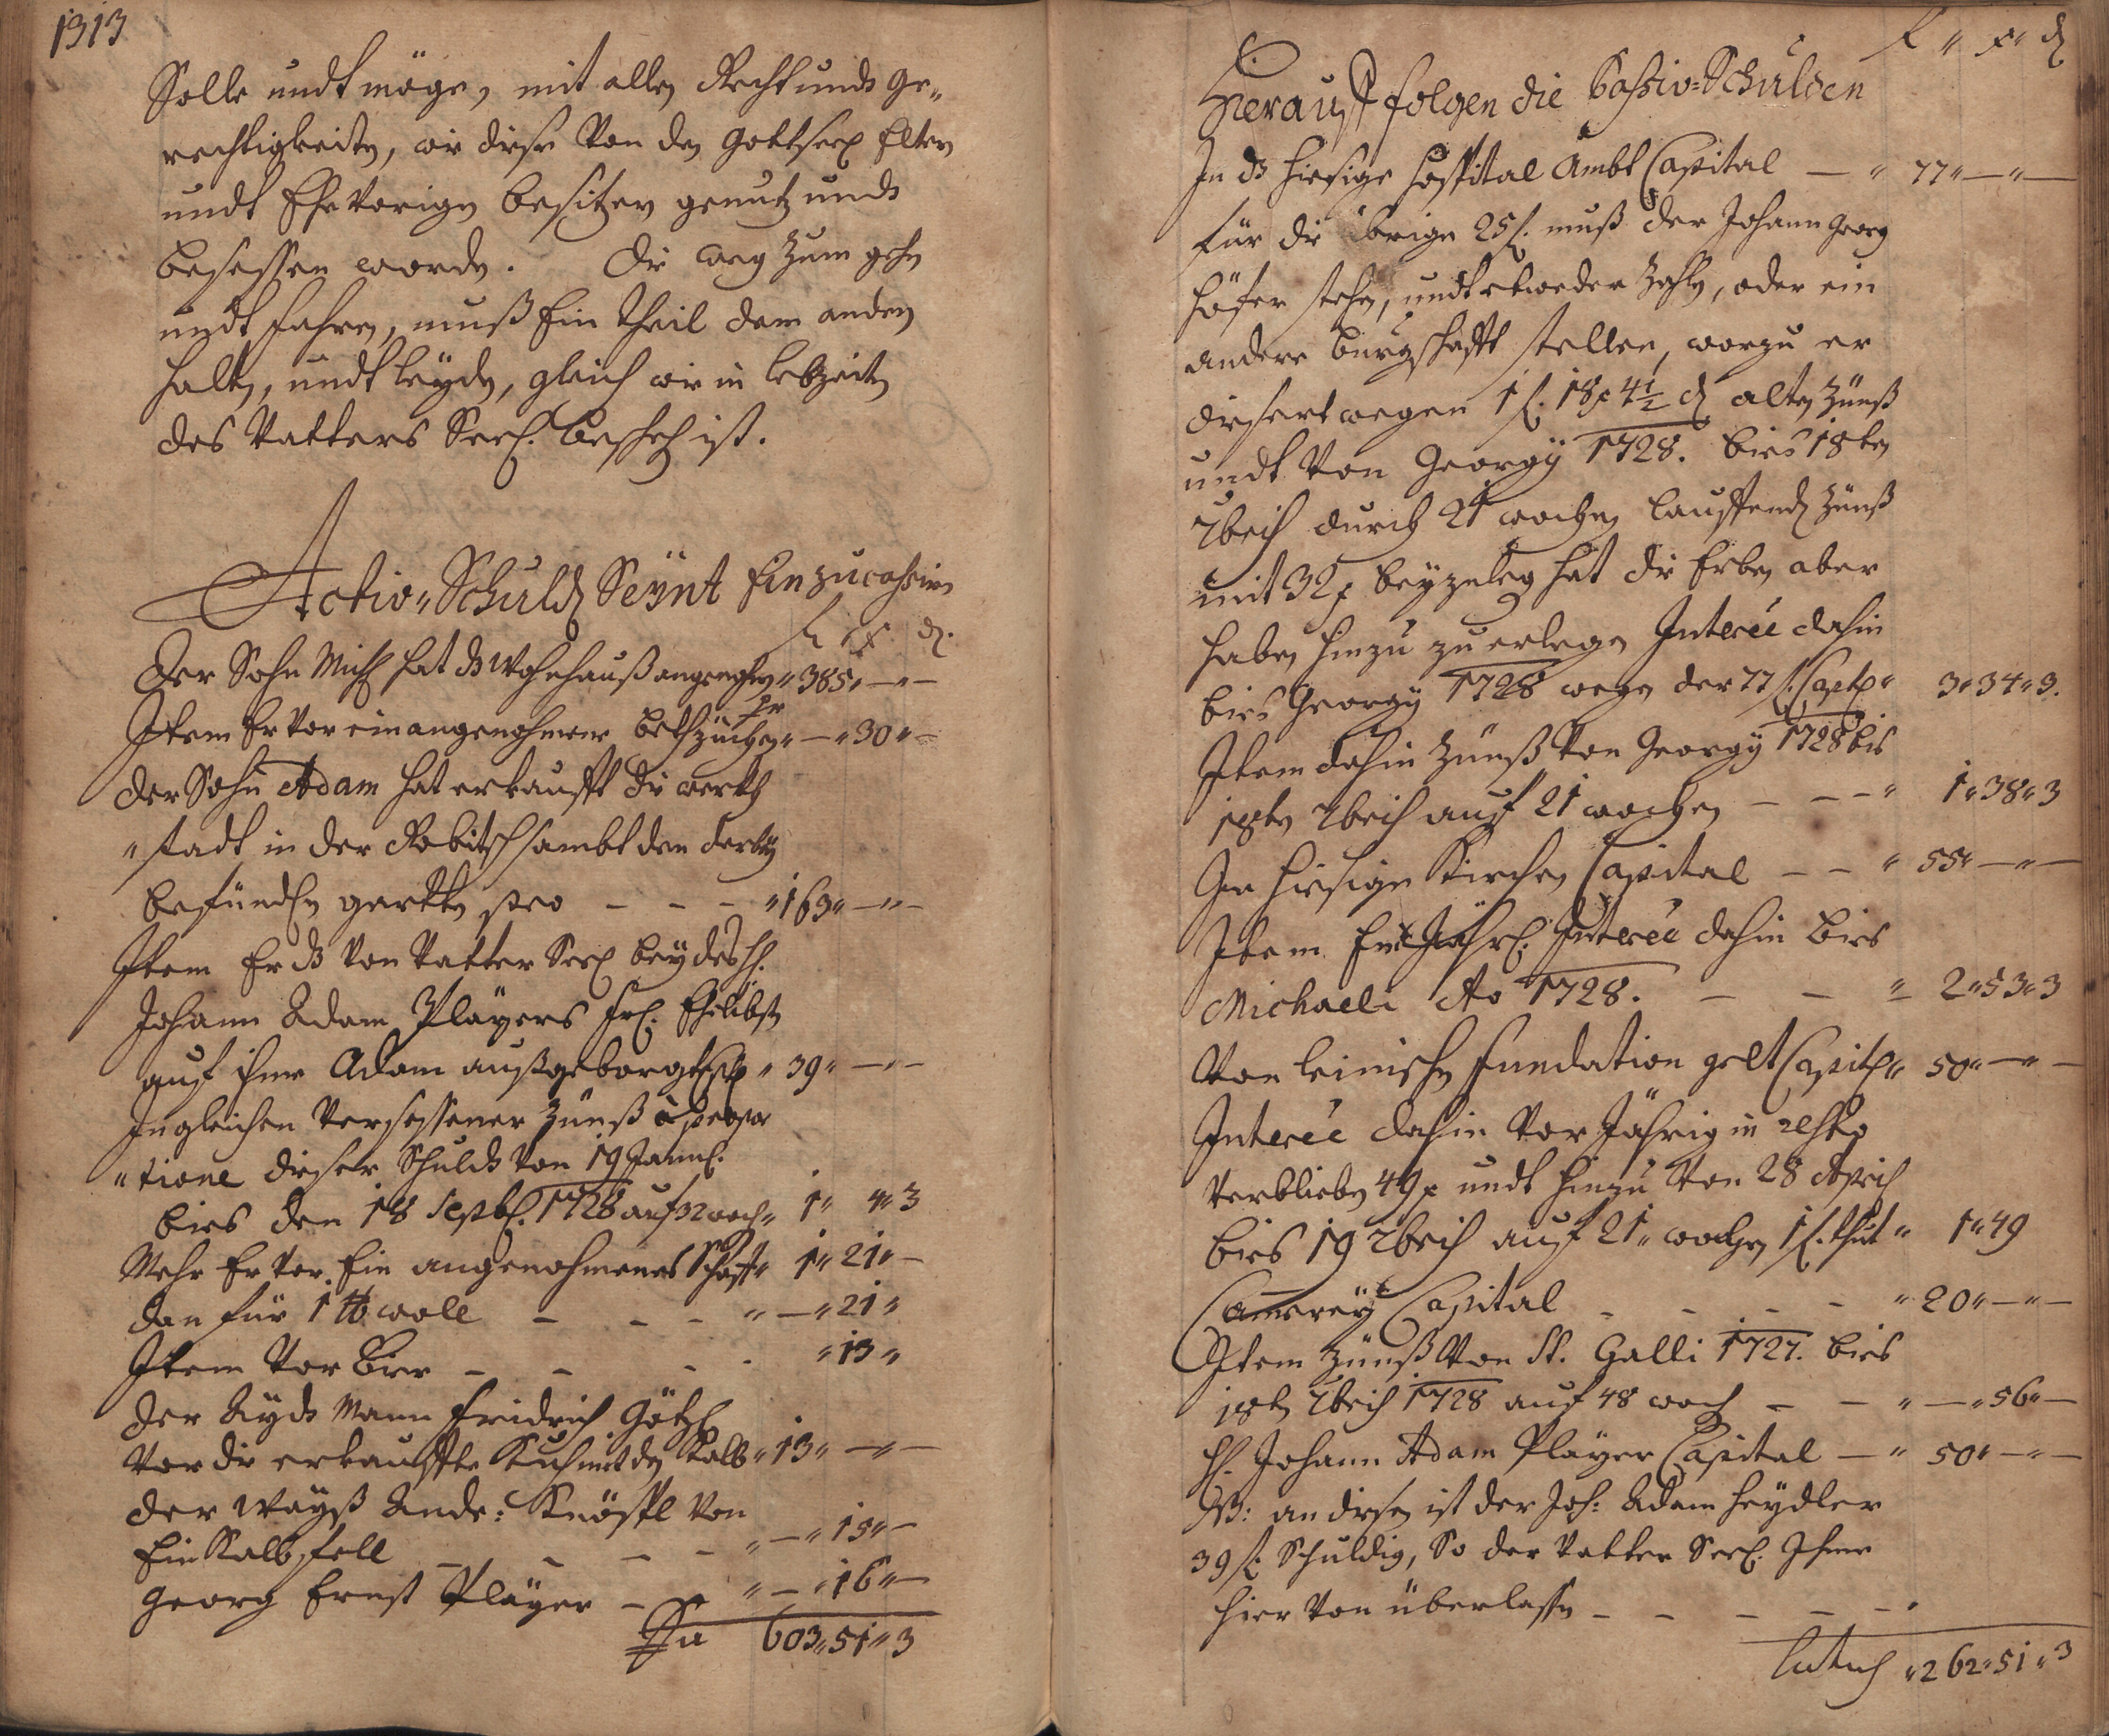 1313
Solle undt möge, mit allen Recht undt Ge-
rechtigkeiten, wie diese von den Gottseel Eltern
undt Ehevorigen besitzern genutz undt
besessen worden. Die weg zum gehn
undt fahren, muß Ein theil dem andern
halten, undt leyden, gleich wie in lebzeiten
des Vatters Seel. beschehen ist.
Activ-Schulden Seynt Einzucassiren
f. x. d.
Der Sohn Michl hat ds Wohnhauß angenohmen " 385 " — " —
Item Er vor ein angenohmene bethzüchen " — " 30 " —
pr
der Sohn Adam hat erkaufft die werck
"stadt in der Robitsch sambt den darbey
befündten gartten pro — — — " 163 " — " —
Item Er ds von Vatter Seel bey des H.
Johann Adam Players Frl. Eheliebsten
auf ihme Adam außgeborgte " 39 " — " —
Ingleichen versessener Zünß à propor
"tione dieser Schuldt von 19 Januar.
bies den 18 Septbl. 1728 auf 32 woch " 1 " 4 " 3
Mehr Er vor Ein angenohmenes Schaff " 1 " 21 " —
dan für 1 ℔ woll — — — " — " 21 "
Item vor Bier — — — — " 13 "
der Ayds Mann Fridrich Götzl
vor die erkauffte Kuh mit den Kalb " 13 " — " —
der Mayß Andr: Knöspl von
Ein Kalbsfell — — — — " — " 15 " —
Georg Ernst Player — " — " 16 " —
Sa 603 " 51 " 3
f " x " d
Hierauff folgen die Passiv-Schulden
In ds hiesige Hospital Ambt Capital — " 77 " — " —
für die übrige 25 f. muß der Johann Georg
Höfer stehen, undt etweder zahlen, oder ein
andere burgschafft stellen, worzu er
diesertwegen 1 f. 18 x 4½ d alten Zünß
undt von Georgy 1728. bies 18ten
7bris durch 21 wochen lauffendt Zünß
mit 32 x beyzuleg hat die Erben aber
haben hinzu zu erlegen Intereé dahin
bies Georgy 1728 wegen der 77 f. Captl " 3 " 34 " 3.
Item dahin Zünß von Georgy 1728 bis
18ten 7bris auf 21 wochen — — — " 1 " 38 " 3
In hiesige Kirchen Capital — — " 55 " — " —
Item Ein Jährl. Intereé dahin bies
Michaeli Ao 1728. — — " 2 " 53 " 3
Von leinischen fundation gelt Capitl " 50 " — " —
Intereé dahin vor Jährig in resto
verblieben 49 x undt hinzu von 28 April
bies 19 7bris auf 21 " wochen 1 f. thut " 1 " 49
Camerey Capital — — — — " 20 " — " —
Item Zünß von St. Galli 1727. bies
18ten 7bris 1728 auf 48 woch — — " — " 56 " —
H. Johann Adam Player Capital — " 50 " — " —
NB: an diesen ist der Joh: Adam Heydler
39 f. Schuldig, So der Vatter Seel. Ihme
hier von überlassen — — — — —
Latus " 262 " 51 " 3